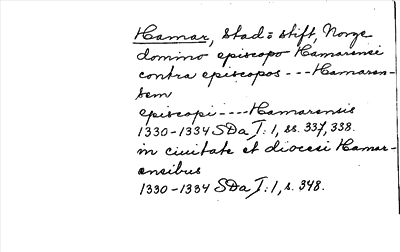 Hamar, stad o stift, Norge
domino episcopo Hamarensi
contra episcopos - - - Hamaren-
sem
episcopi - - - - Hamarensis
1330-1334 SDa I:1, ss. 337, 338.
in ciuitate et diocesi Hamar-
ensibus
1330-1334 SDa I:1, s. 348.